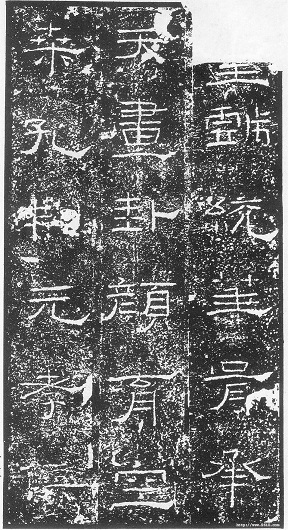 皇戲統華胥承
天畫卦顏育空
桑孔制元孝俱
http://www.9610.com